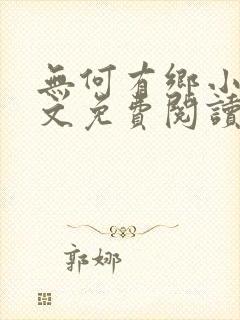 無何有鄉小
文免費閱讀
郭娜